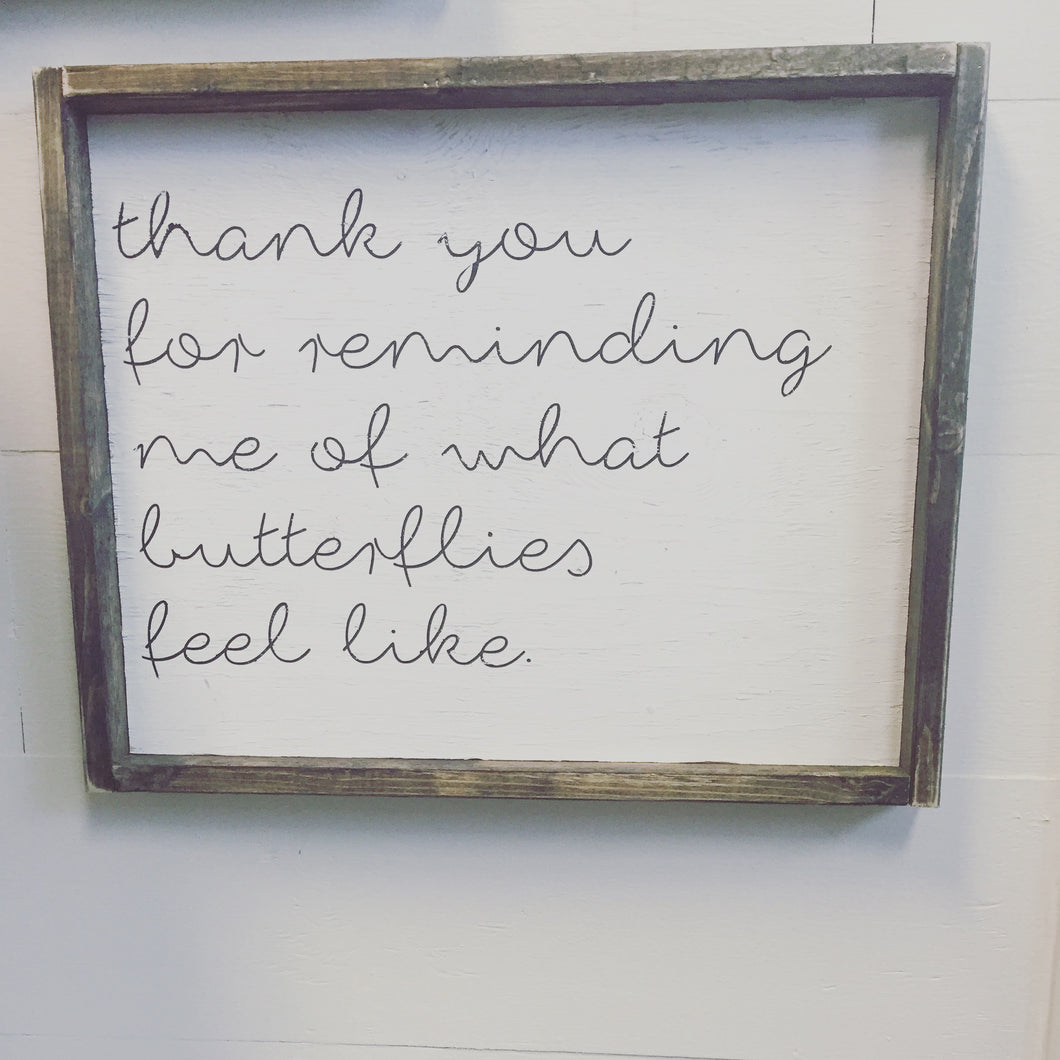 thank you
for reminding
me of what
butterflies
feel like.